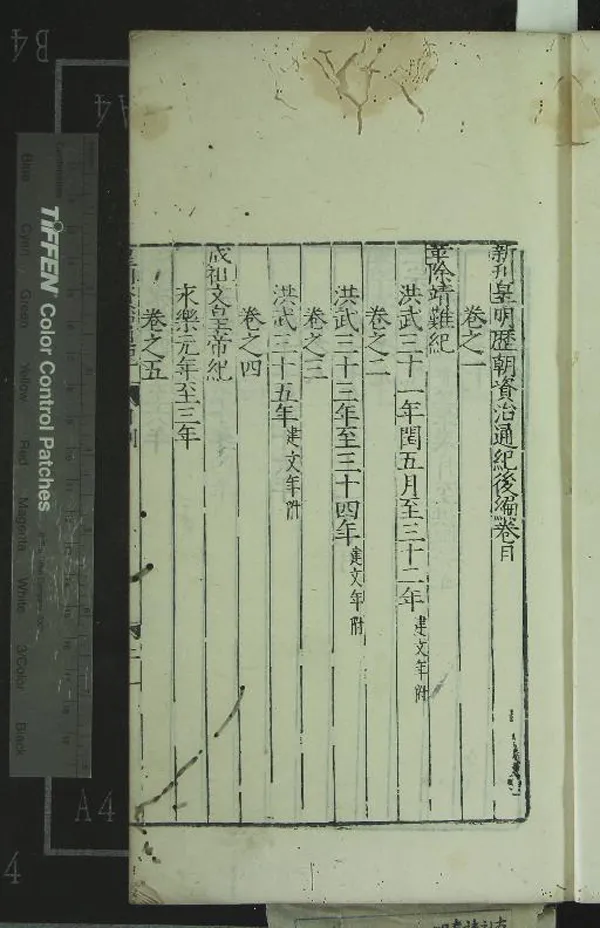 新刋皇明歷朝資治通紀後編卷目
卷之一
革除靖難紀
洪武三十一年閏五月至三十二年建文年附
卷之二
洪武三十三年至三十四年建文年附
卷之三
洪武三十五年建文年附
卷之四
成祖文皇帝紀
永樂元年至三年
卷之五
TIFFEN® Color Control Patches
Blue
Cyan
Green
Yellow
Red
Magenta
White
3/Color
Black
B4
A4
A4
4